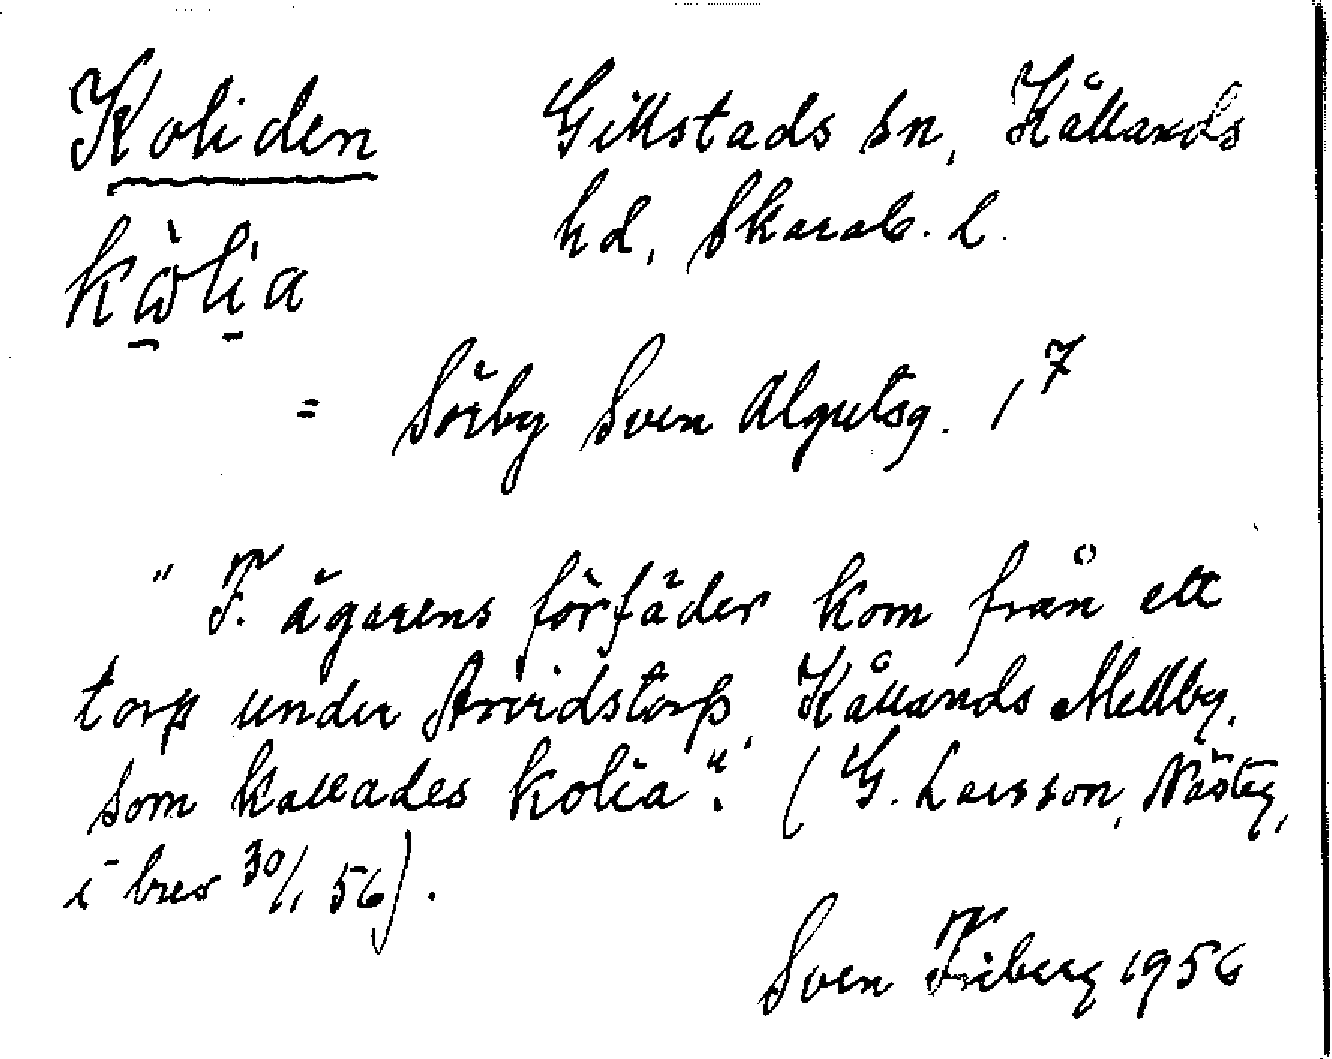 Koliden Gillstads sn, Kållands
hd, Skarab. l.
kὼlia
= Sörby Sven Algutsg. 1⁷
" F. ägarens förfäder kom från ett
torp under Arvidstorp, Kållands Mellby,
som kallades Kolia". (G. Larsson,
i brev 30/1 56).
Sven Friberg 1956